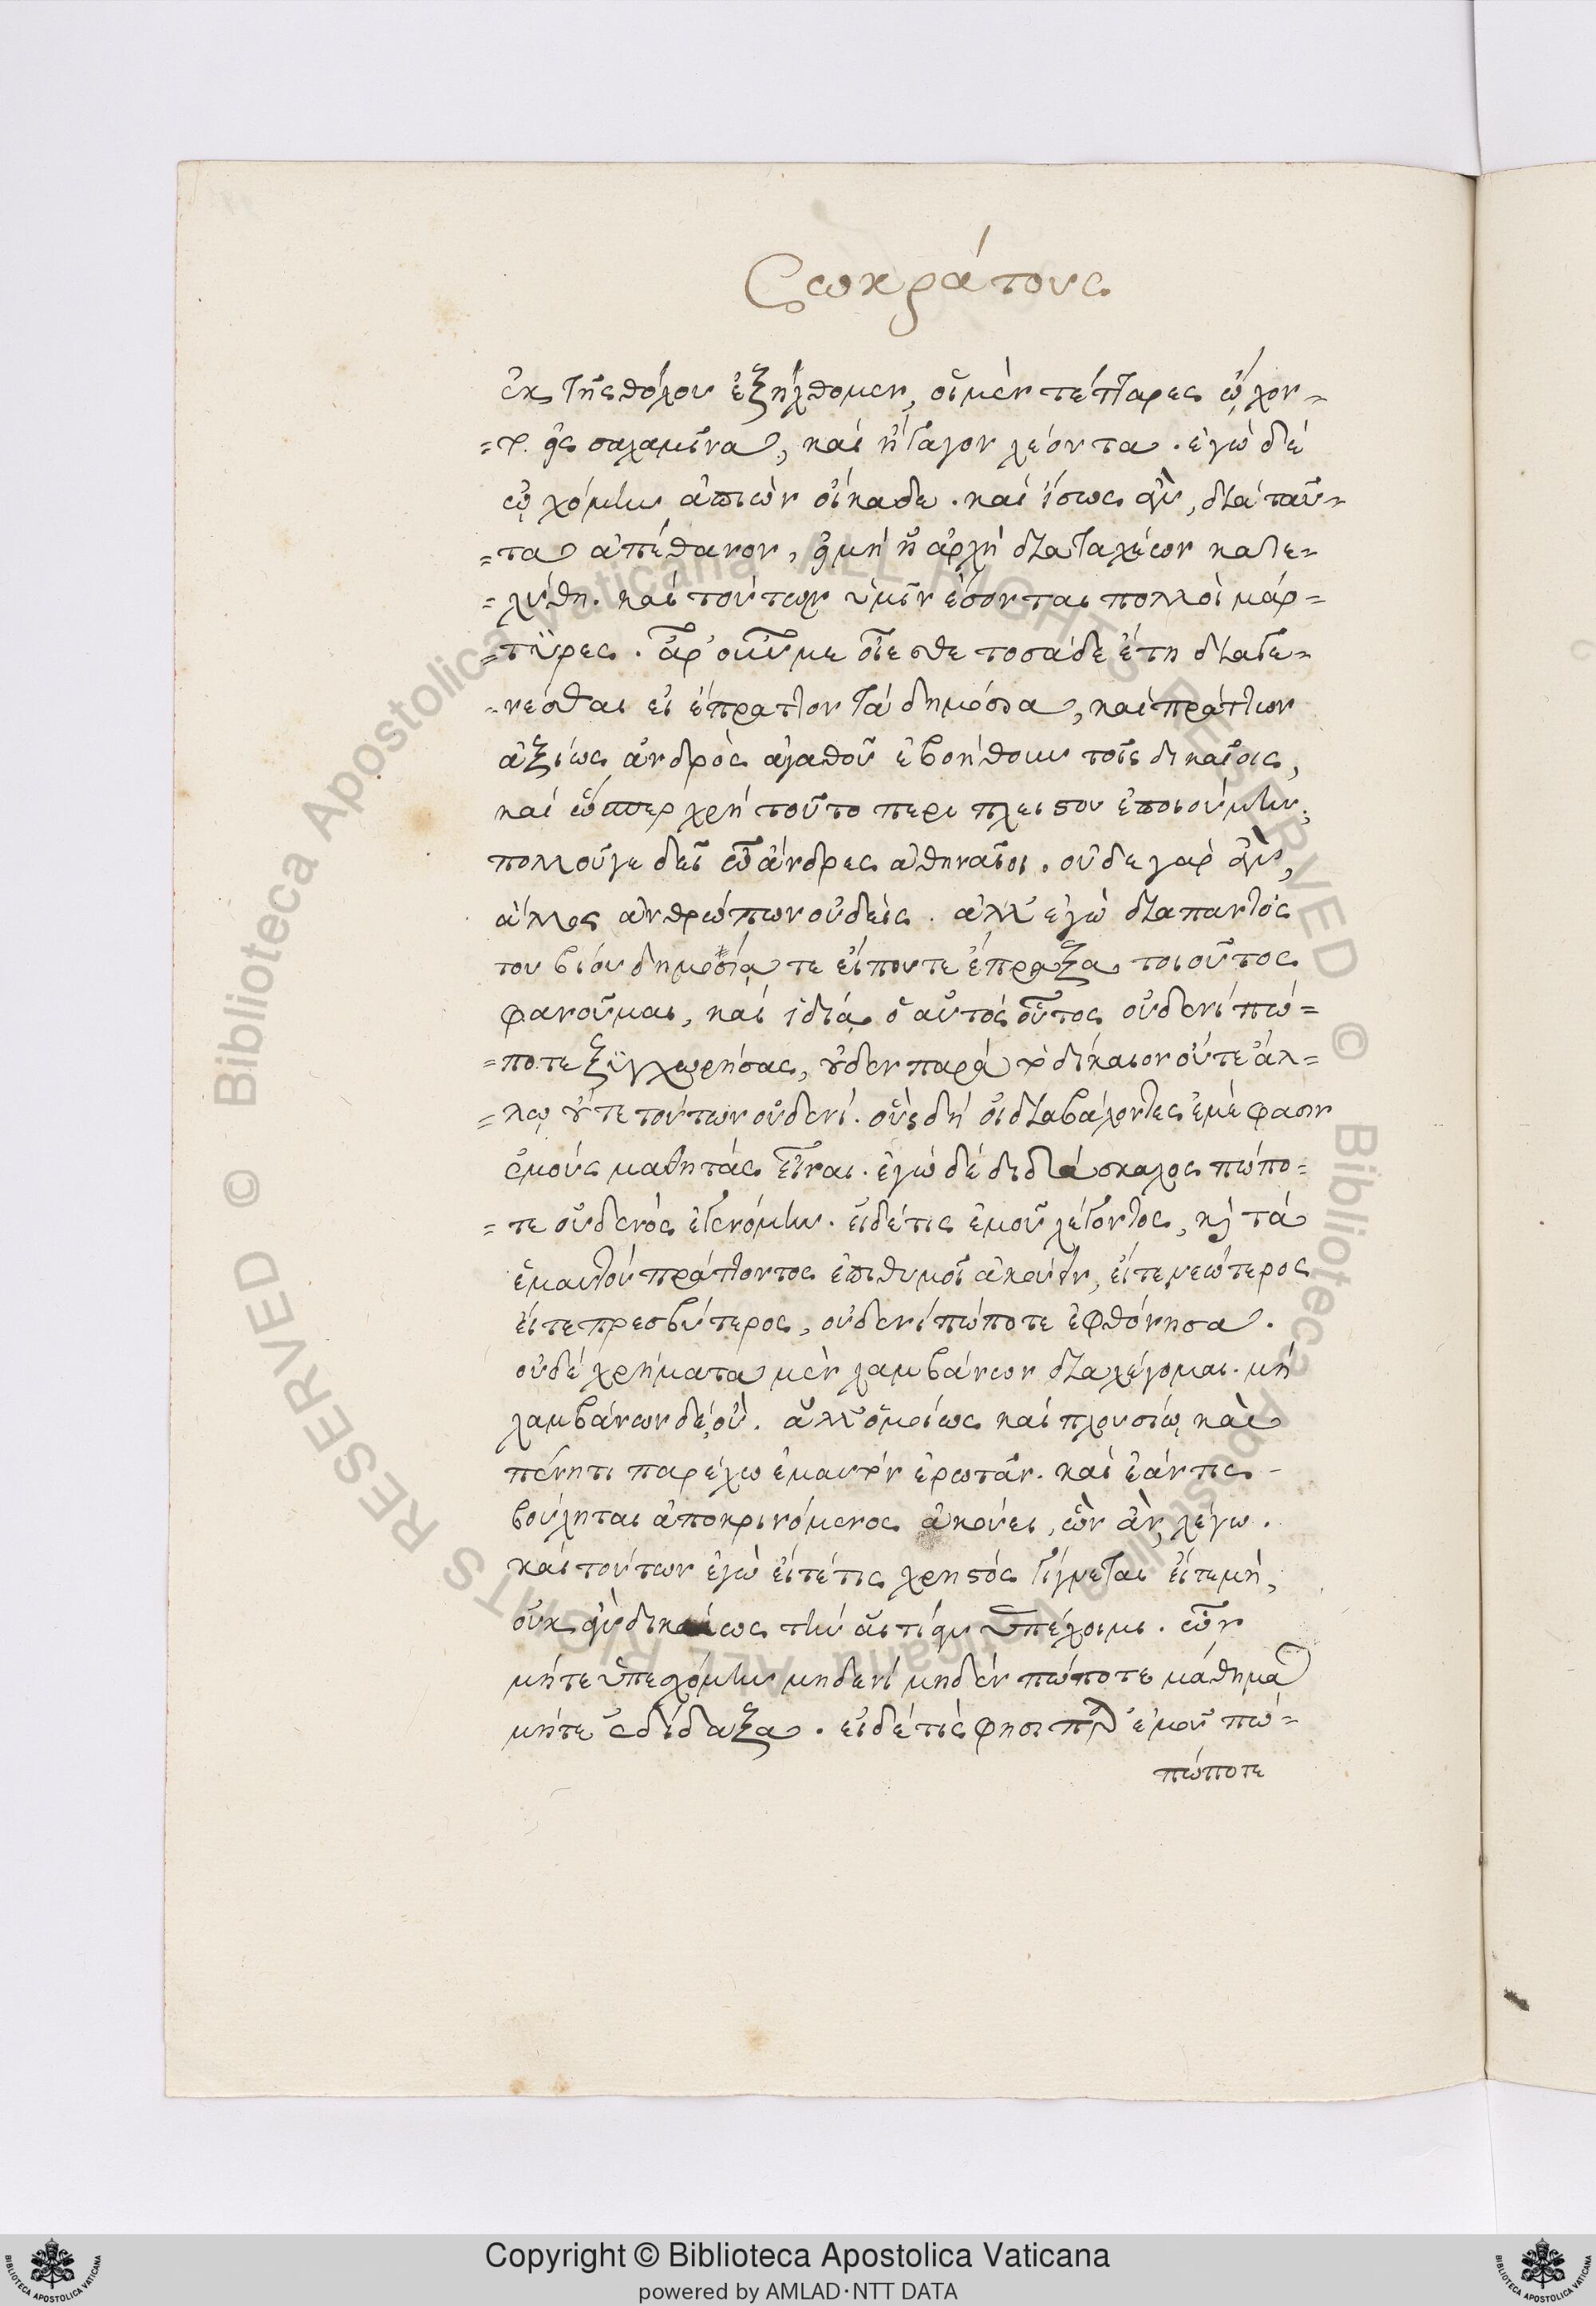 Σωκράτους
ἐκ τῆς θόλου ἐξήλθομεν, οἱ μὲν τέτταρες ᾤχον=
=το εἰς σαλαμῖνα, καὶ ἤγαγον λέοντα. ἐγὼ δὲ
ᾠχόμην ἀπιὼν οἴκαδε. καὶ ἴσως ἂν, διὰ ταῦ=
=τα ἀπέθανον, εἰ μὴ ἡ ἀρχὴ διαταχέων κατε=
=λύθη. καὶ τούτων ὑμῖν ἔσονται πολλοὶ μάρ=
=τυρες. ἆρ' οὖν με οἴεσθε τοσάδε ἔτη διαγε=
=νέσθαι εἰ ἔπραττον τὰ δημόσια, καὶ πράττων
ἀξίως ἀνδρὸς ἀγαθοῦ ἐβοήθουν τοῖς δικαίοις,
καὶ ὥσπερ χρὴ τοῦτο περι πλειστου ἐποιούμην;
πολλοῦγε δεῖ ὦ ἄνδρες ἀθηναῖοι. οὐδε γὰρ ἂν,
ἄλλος ἀνθρώπων οὐδείς. ἀλλ' ἐγὼ διαπαντὸς
του βίου δημοσίᾳ τε εἴπουτε ἔπραξα τοιοῦτος
φανοῦμαι, καὶ ἰδίᾳ ὁ αὐτὸς οὗτος οὐδενὶ πώ=
=ποτε ξυγχωρήσας, οὐδεν παρὰ τὸ δίκαιον οὔτε ἄλ=
=λῳ οὔτε τούτων οὐδενί. οὓς δὴ οἱ διαβάλοντες ἐμὲ φασιν
ἐμοὺς μαθητὰς εἶναι. ἐγὼ δὲ διδιάσκαλος πώπο=
=τε οὐδενὸς ἐγενόμην. εἰδέτις ἐμοῦ λέγοντος, καὶ τὰ
ἐμαυτοῦ πράττοντος ἐπιθυμοῖ ἀκούειν, εἴτε νεώτερος
εἴτε πρεσβύτερος, οὐδενὶ πώποτε ἐφθόνησα.
οὐδὲ χρήματα μὲν λαμβάνων διαλέγομαι. μὴ
λαμβάνων δέ, οὔ. ἀλλ' ὁμοίως καὶ πλουσίῳ καὶ
πένητι παρέχω ἐμαυτὸν ἐρωτᾶν. καὶ ἐάν τις
βούληται ἀποκρινόμενος ἀκούει, ὧν ἂν λέγω.
καὶ τούτων ἐγὼ εἴτέτις χρηστὸς γίγνεται εἴτεμὴ,
οὐκ ἂν δικαίως τὴν αἰτίαν ὑπέχοιμι. ὧν
μήτε ὑπεσχόμην μηδενὶ μηδὲν πώποτε μάθημα
μήτε ἐδίδαξα. εἰδέτίς φησι παρ' ἐμοῦ πώ=
πώποτε